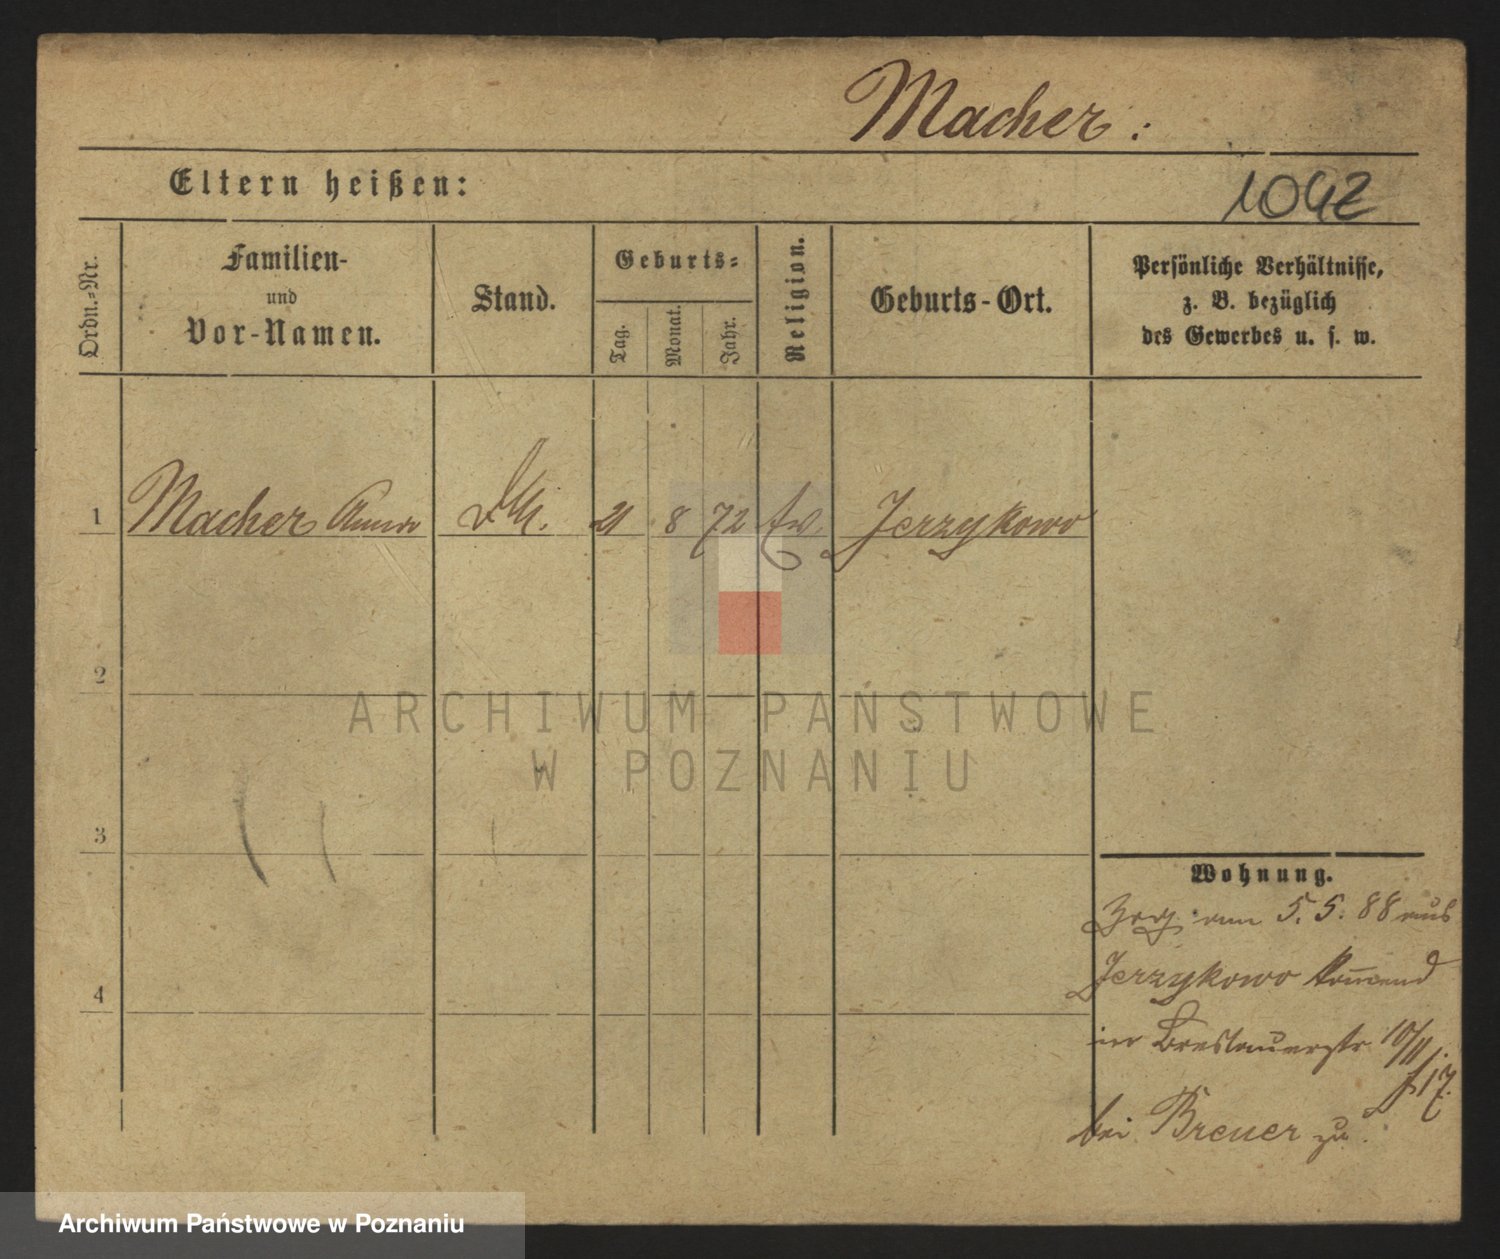 Macher:
Eltern heißen:
1042
Ordn.-Nr.
Familien-
und
Vor-Namen.
Stand.
Geburts-
Tag.
Monat.
Jahr.
Religion.
Geburts-Ort.
Persönliche Verhältnisse,
z. B. bezüglich
des Gewerbes u. s. w.
1 Macher Anna 21 8 72 ev Jerzykowo
2
3
4
ARCHIWUM PAŃSTWOWE
W POZNANIU
Wohnung.
Zog am 5. 5. 88 aus
Jerzykowo kom̅end
in Breslauerstr 10/11
bei Breuer zu.
Archiwum Państwowe w Poznaniu